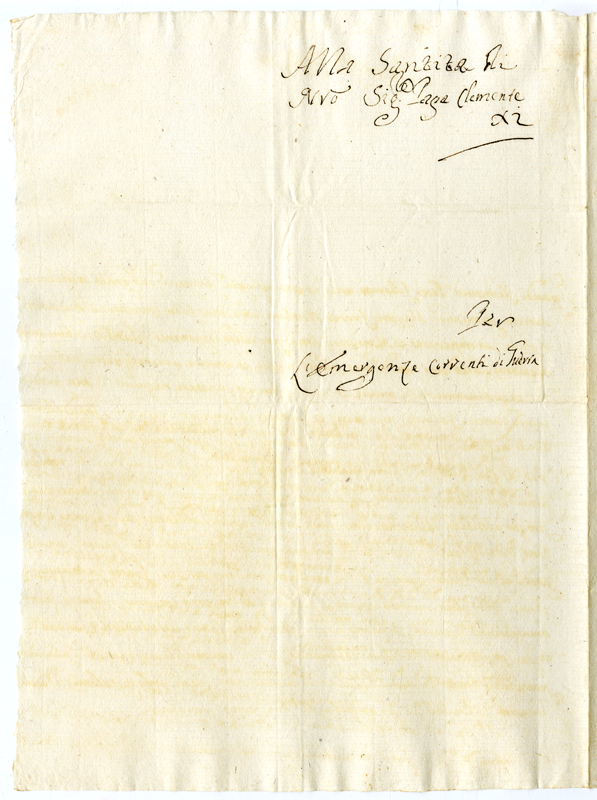 Alla Santità di
Nrõ Sig.re Papa Clemente
XI
Per
L'Emergenze correnti di